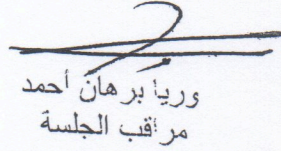 وريا برهان أحمد
مراقب الجلسة